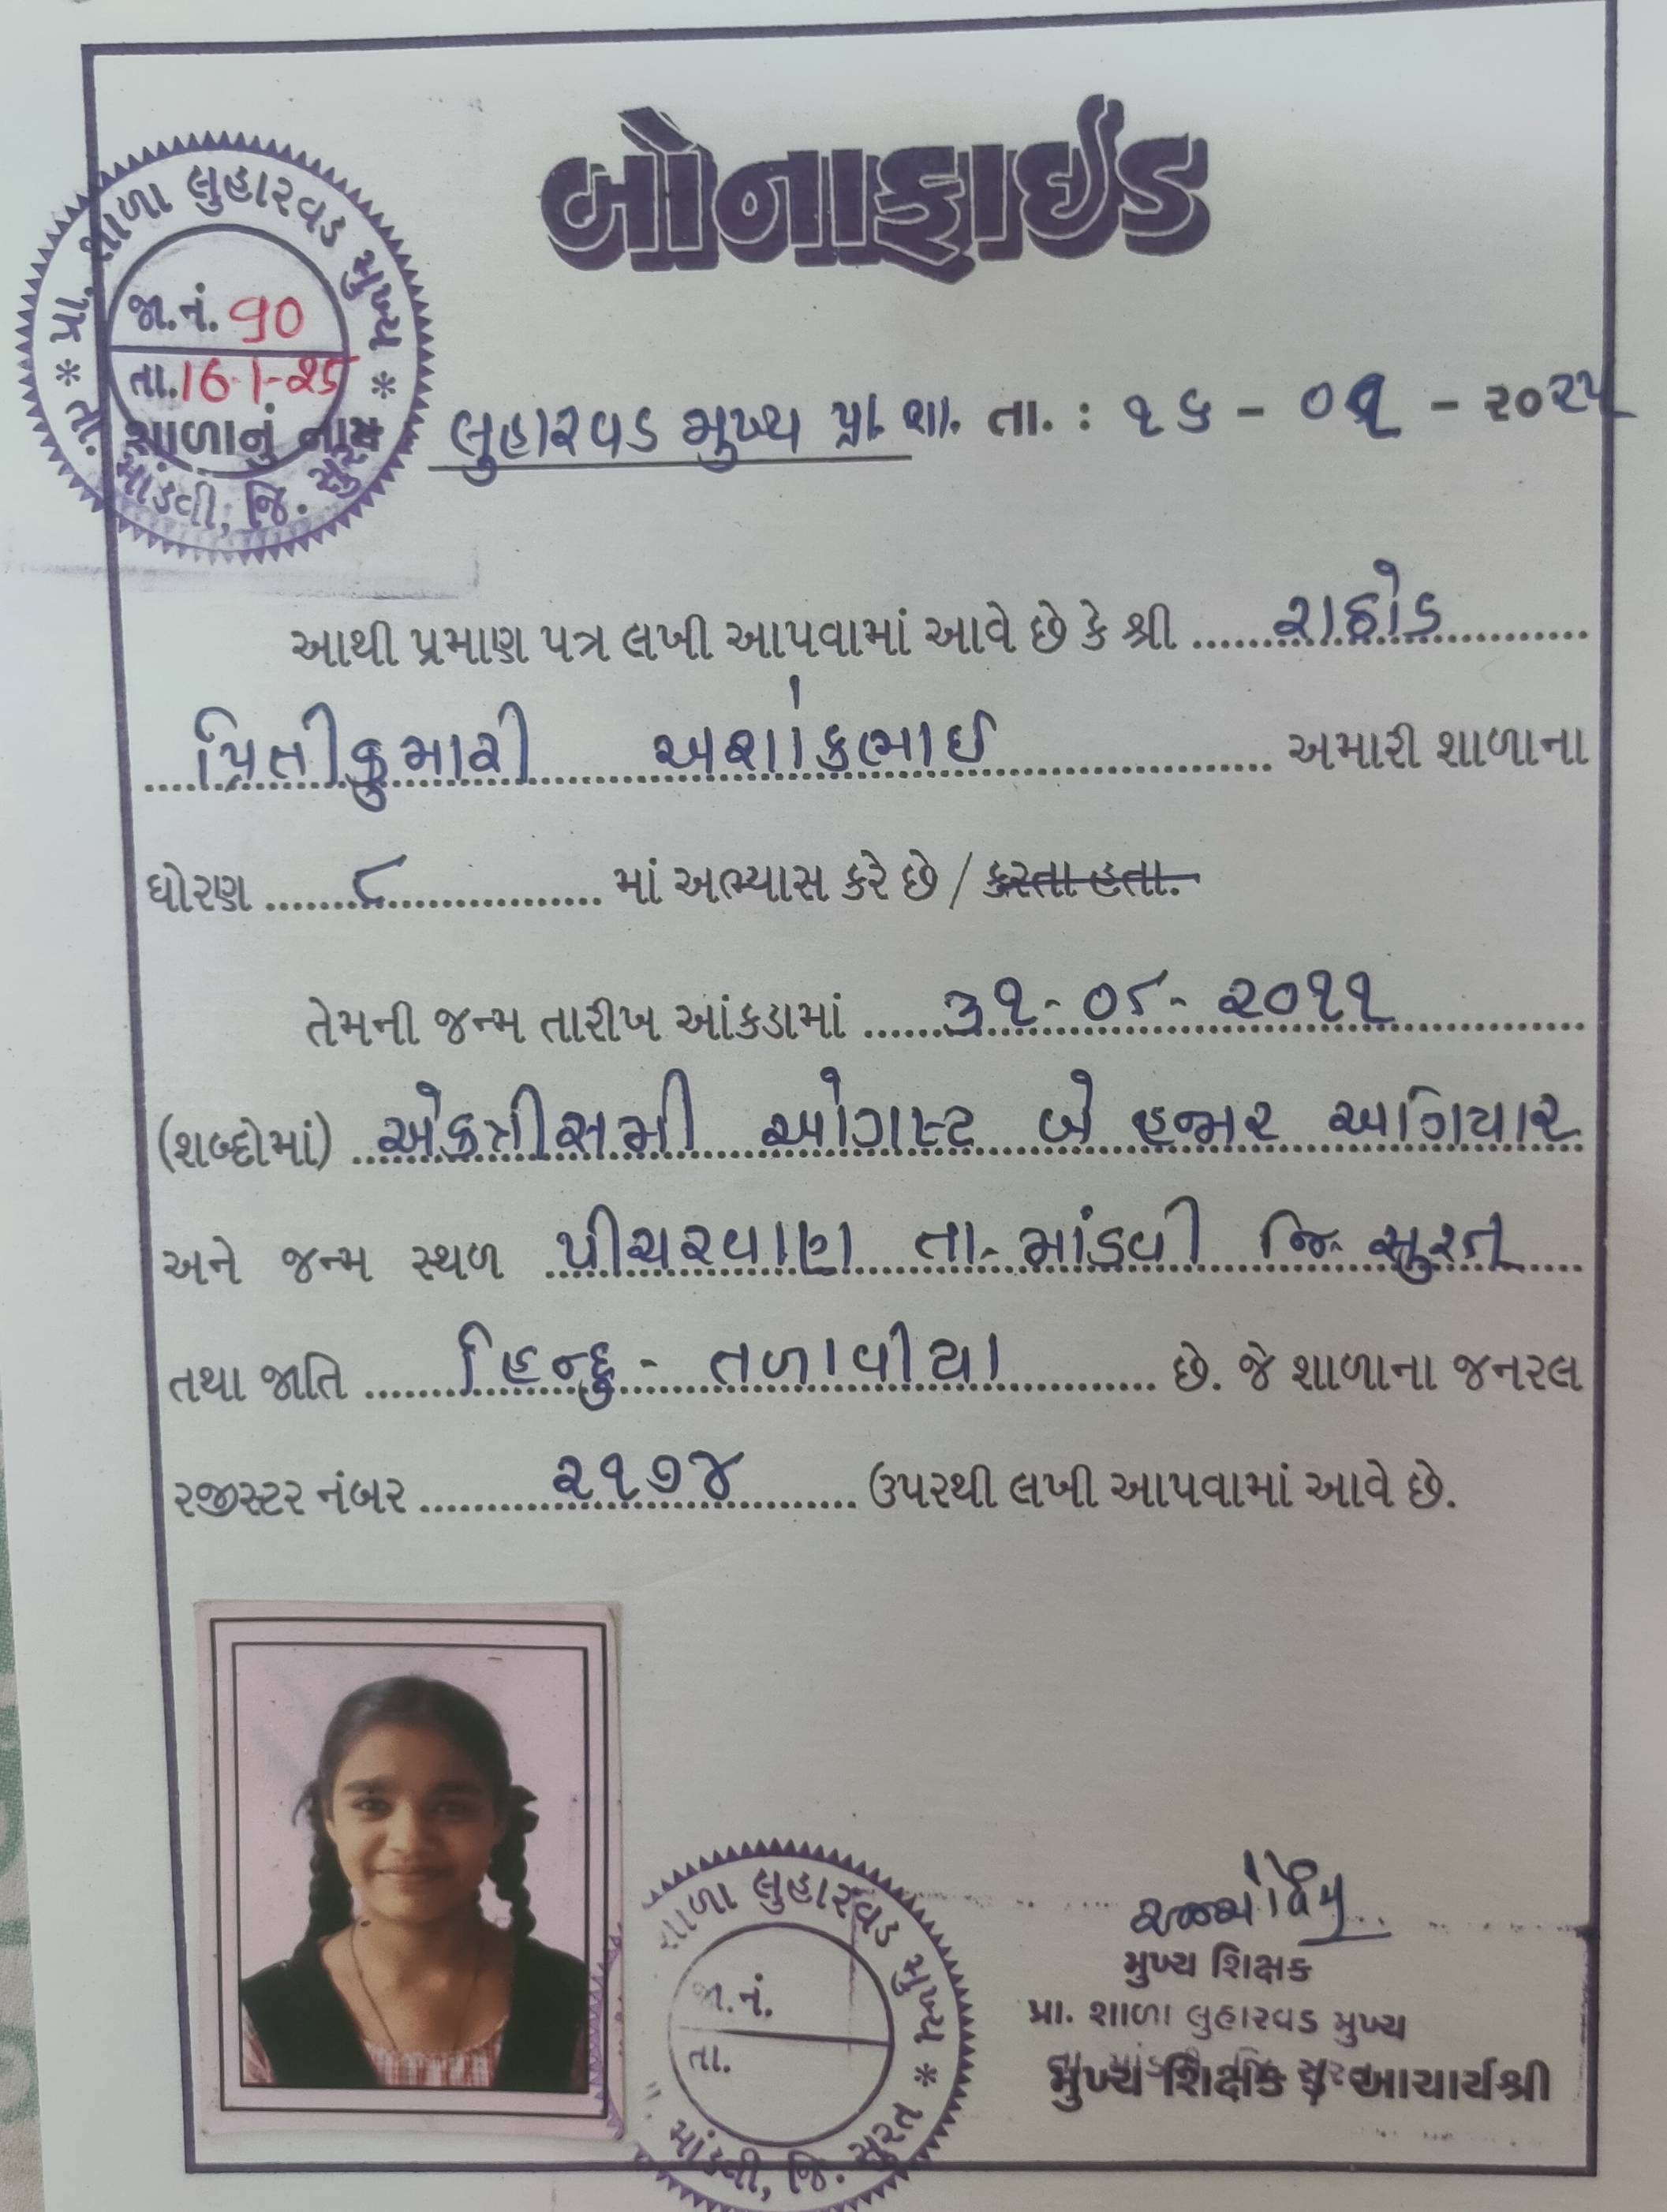 બોનાફાઈડ
પ્રા. શાળા લુહારવડ મુખ્ય
જા.નં. ૧૦
તા. 16-1-૨૫
શાળાનું નામ
તા. માંડવી, જિ. સુરત
લુહારવડ મુખ્ય પ્રા. શા. તા. : ૧૬ - ૦૧ - ૨૦૨૫
આથી પ્રમાણ પત્ર લખી આપવામાં આવે છે કે શ્રી રાઠોડ
પ્રિતીકુમારી અશોકભાઈ અમારી શાળાના
ધોરણ ૮ માં અભ્યાસ કરે છે / કરતા હતા.
તેમની જન્મ તારીખ આંકડામાં ૩૧-૦૮-૨૦૧૧
(શબ્દોમાં) એકત્રીસમી ઓગસ્ટ બે હજાર અગિયાર
અને જન્મ સ્થળ પીચરવાણ તા. માંડવી જિ. સુરત
તથા જાતિ હિન્દુ - તળાવીયા છે. જે શાળાના જનરલ
રજીસ્ટર નંબર ૨૧૭૪ ઉપરથી લખી આપવામાં આવે છે.
શાળા લુહારવડ મુખ્ય
જા.નં.
તા.
માંડવી, જિ. સુરત
મુખ્ય શિક્ષક
પ્રા. શાળા લુહારવડ મુખ્ય
મુખ્ય શિક્ષક / આચાર્યશ્રી